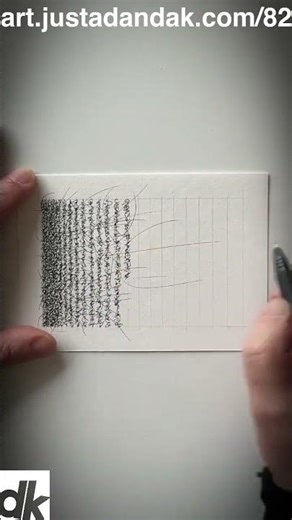 art.justadandak.com/82
dk